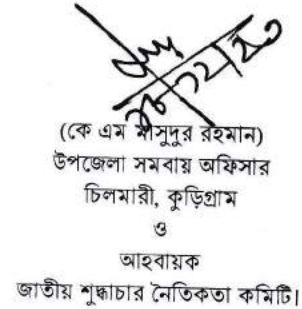 (কে এম মাসুদুর রহমান)
উপজেলা সমবায় অফিসার
চিলমারী, কুড়িগ্রাম
ও
আহবায়ক
জাতীয় শুদ্ধাচার নৈতিকতা কমিটি।